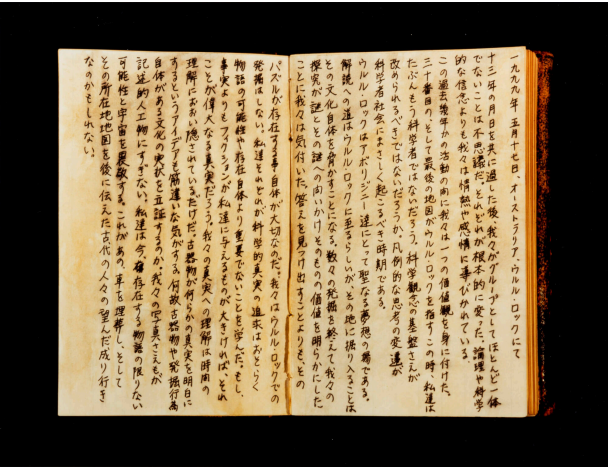 一九九九年 五月十七日、オーストラリア、ウルル・ロックにて
十三年の月日を共に過した後、我々がグループとしてほとんど一体
でないことは不思議だ。それぞれが根本的に変った。論理や科学
的な信念よりも我々は情熱や感情に導びかれている。
この過去幾年かの活動の間に我々は一つの価値観を身に付けた。
三十番目の、そして最後の地図がウルル・ロックを指すこの時、私達は
たぶんもう科学者ではないだろう。科学観念の基盤さえが
改められるべきではないだろうか。凡例的な思考の変遷が
科学者社会にまさしく起こるべき時期である。
ウルル・ロックはアボリジニー達にとって聖なる夢想の場である。
解説への道はウルル・ロックに至るらしいが、その地に掘り入ることは
その文化自体を脅かすことになる。数々の発掘を終えて我々の
探究が謎とその謎への向いかけそのものの価値を明らかにした
ことに我々は気付いた。答えを見つけ出すことよりも、その
パズルが存在する事自体が大切なのだ。我々はウルル・ロックでの
発掘はしない。私達それぞれが科学的真実の追求はおそらく
物語の可能性や存在自体より重要でないことを学んだ。もし、
事実よりもフィクションが私達に与えるものが大きければ、それ
ことが偉大なる真実だろう。我々の真実への理解は時間の
理解におおい隠されているだけだ。古器物が何らかの真実を明日に
するというアイデアも筋違いな気がする。何故古器物や発掘行為
自体がある文化の実状を立証するのか。我々の写真さえもが
記述的人工物にすぎない。私達は今、存在する物語の限りない
可能性と宇宙を畏敬する。これがあの、車を埋葬し、そして
その所在地地図を後に伝えた古代の人々の望んだ成り行き
なのかもしれない。